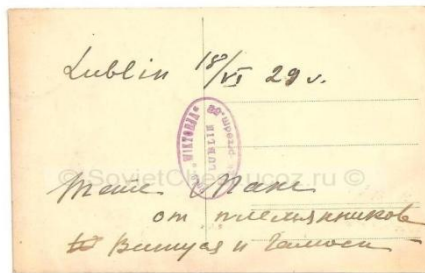 Lublin 18/VI 29 г.
"WIKTORJA"
LUBLIN
© SovietChess.ucoz.ru ©
Тане
от племянников
Витуся и